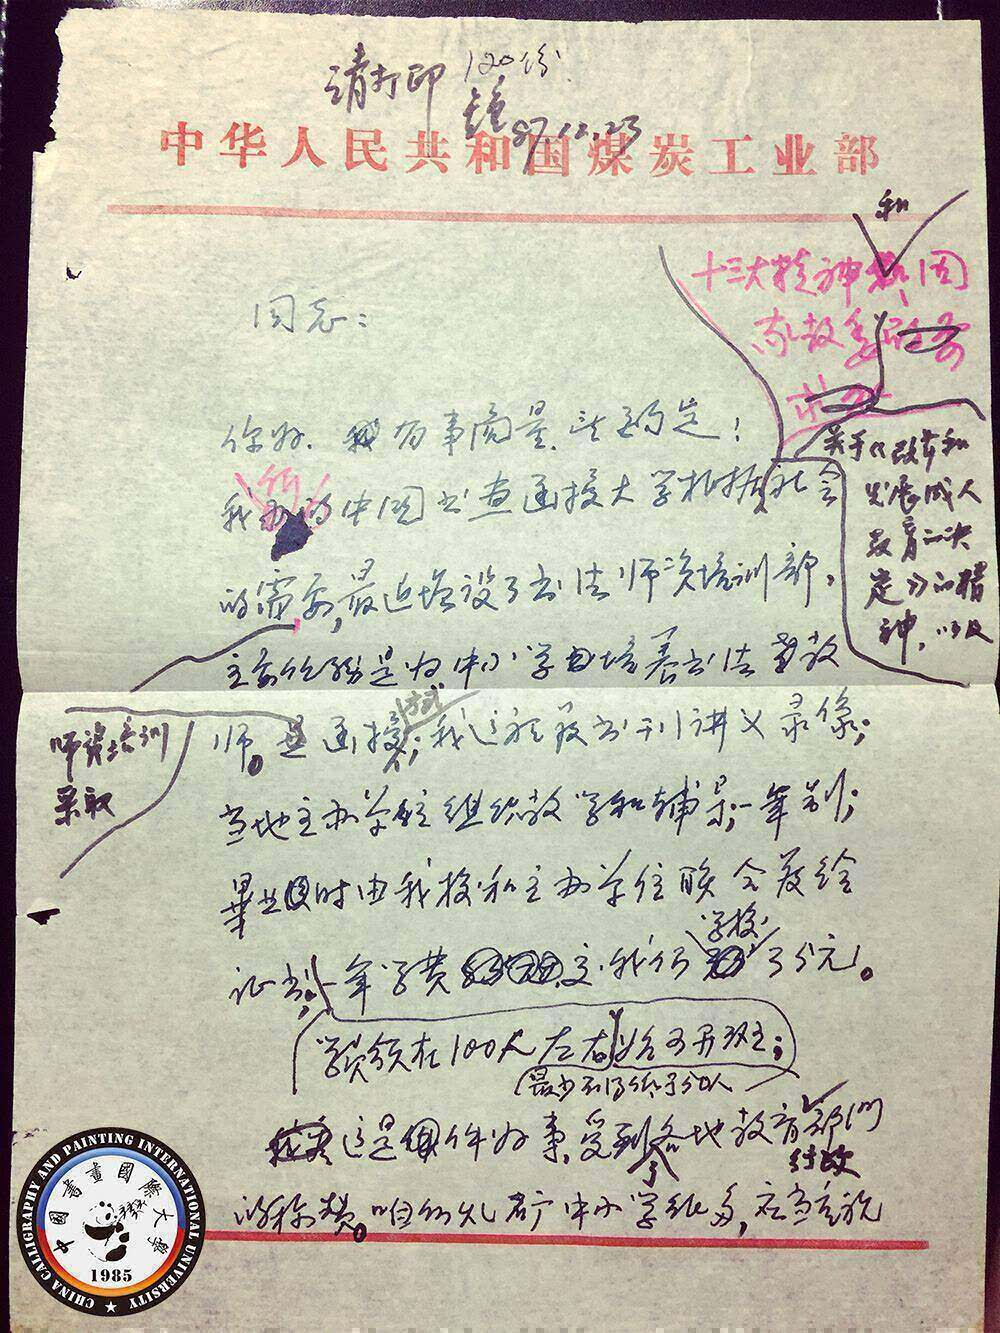 请打印 120份
87.12.23
中华人民共和国煤炭工业部
和
十三大精神 国
家教委
关于《改革和
发展成人
教育的决
定》的精
神，以及
同志：
你好、我有事商量，
我们的中国书画函授大学根据社会
的需要，最近增设了书法师资培训部，
主要任务是为中小学培养书法教
师资培训
采取
师。函授，我校 发书刊讲义录像；
方式
当地主办单位组织教学和辅导；一年制；
毕业时由我校和主办单位联合发给
学校
证书；一年学费 交我们 75元。
学员须在100人左右始可开班；
最少不得低于50人
这是件好事，受到各地教育部门
了
行政
的称赞。咱们 矿中小学很多，在
中國書畫國際大學
CHINA CALIGRAPHY AND PAINTING INTERNATIONAL UNIVERSITY
1985